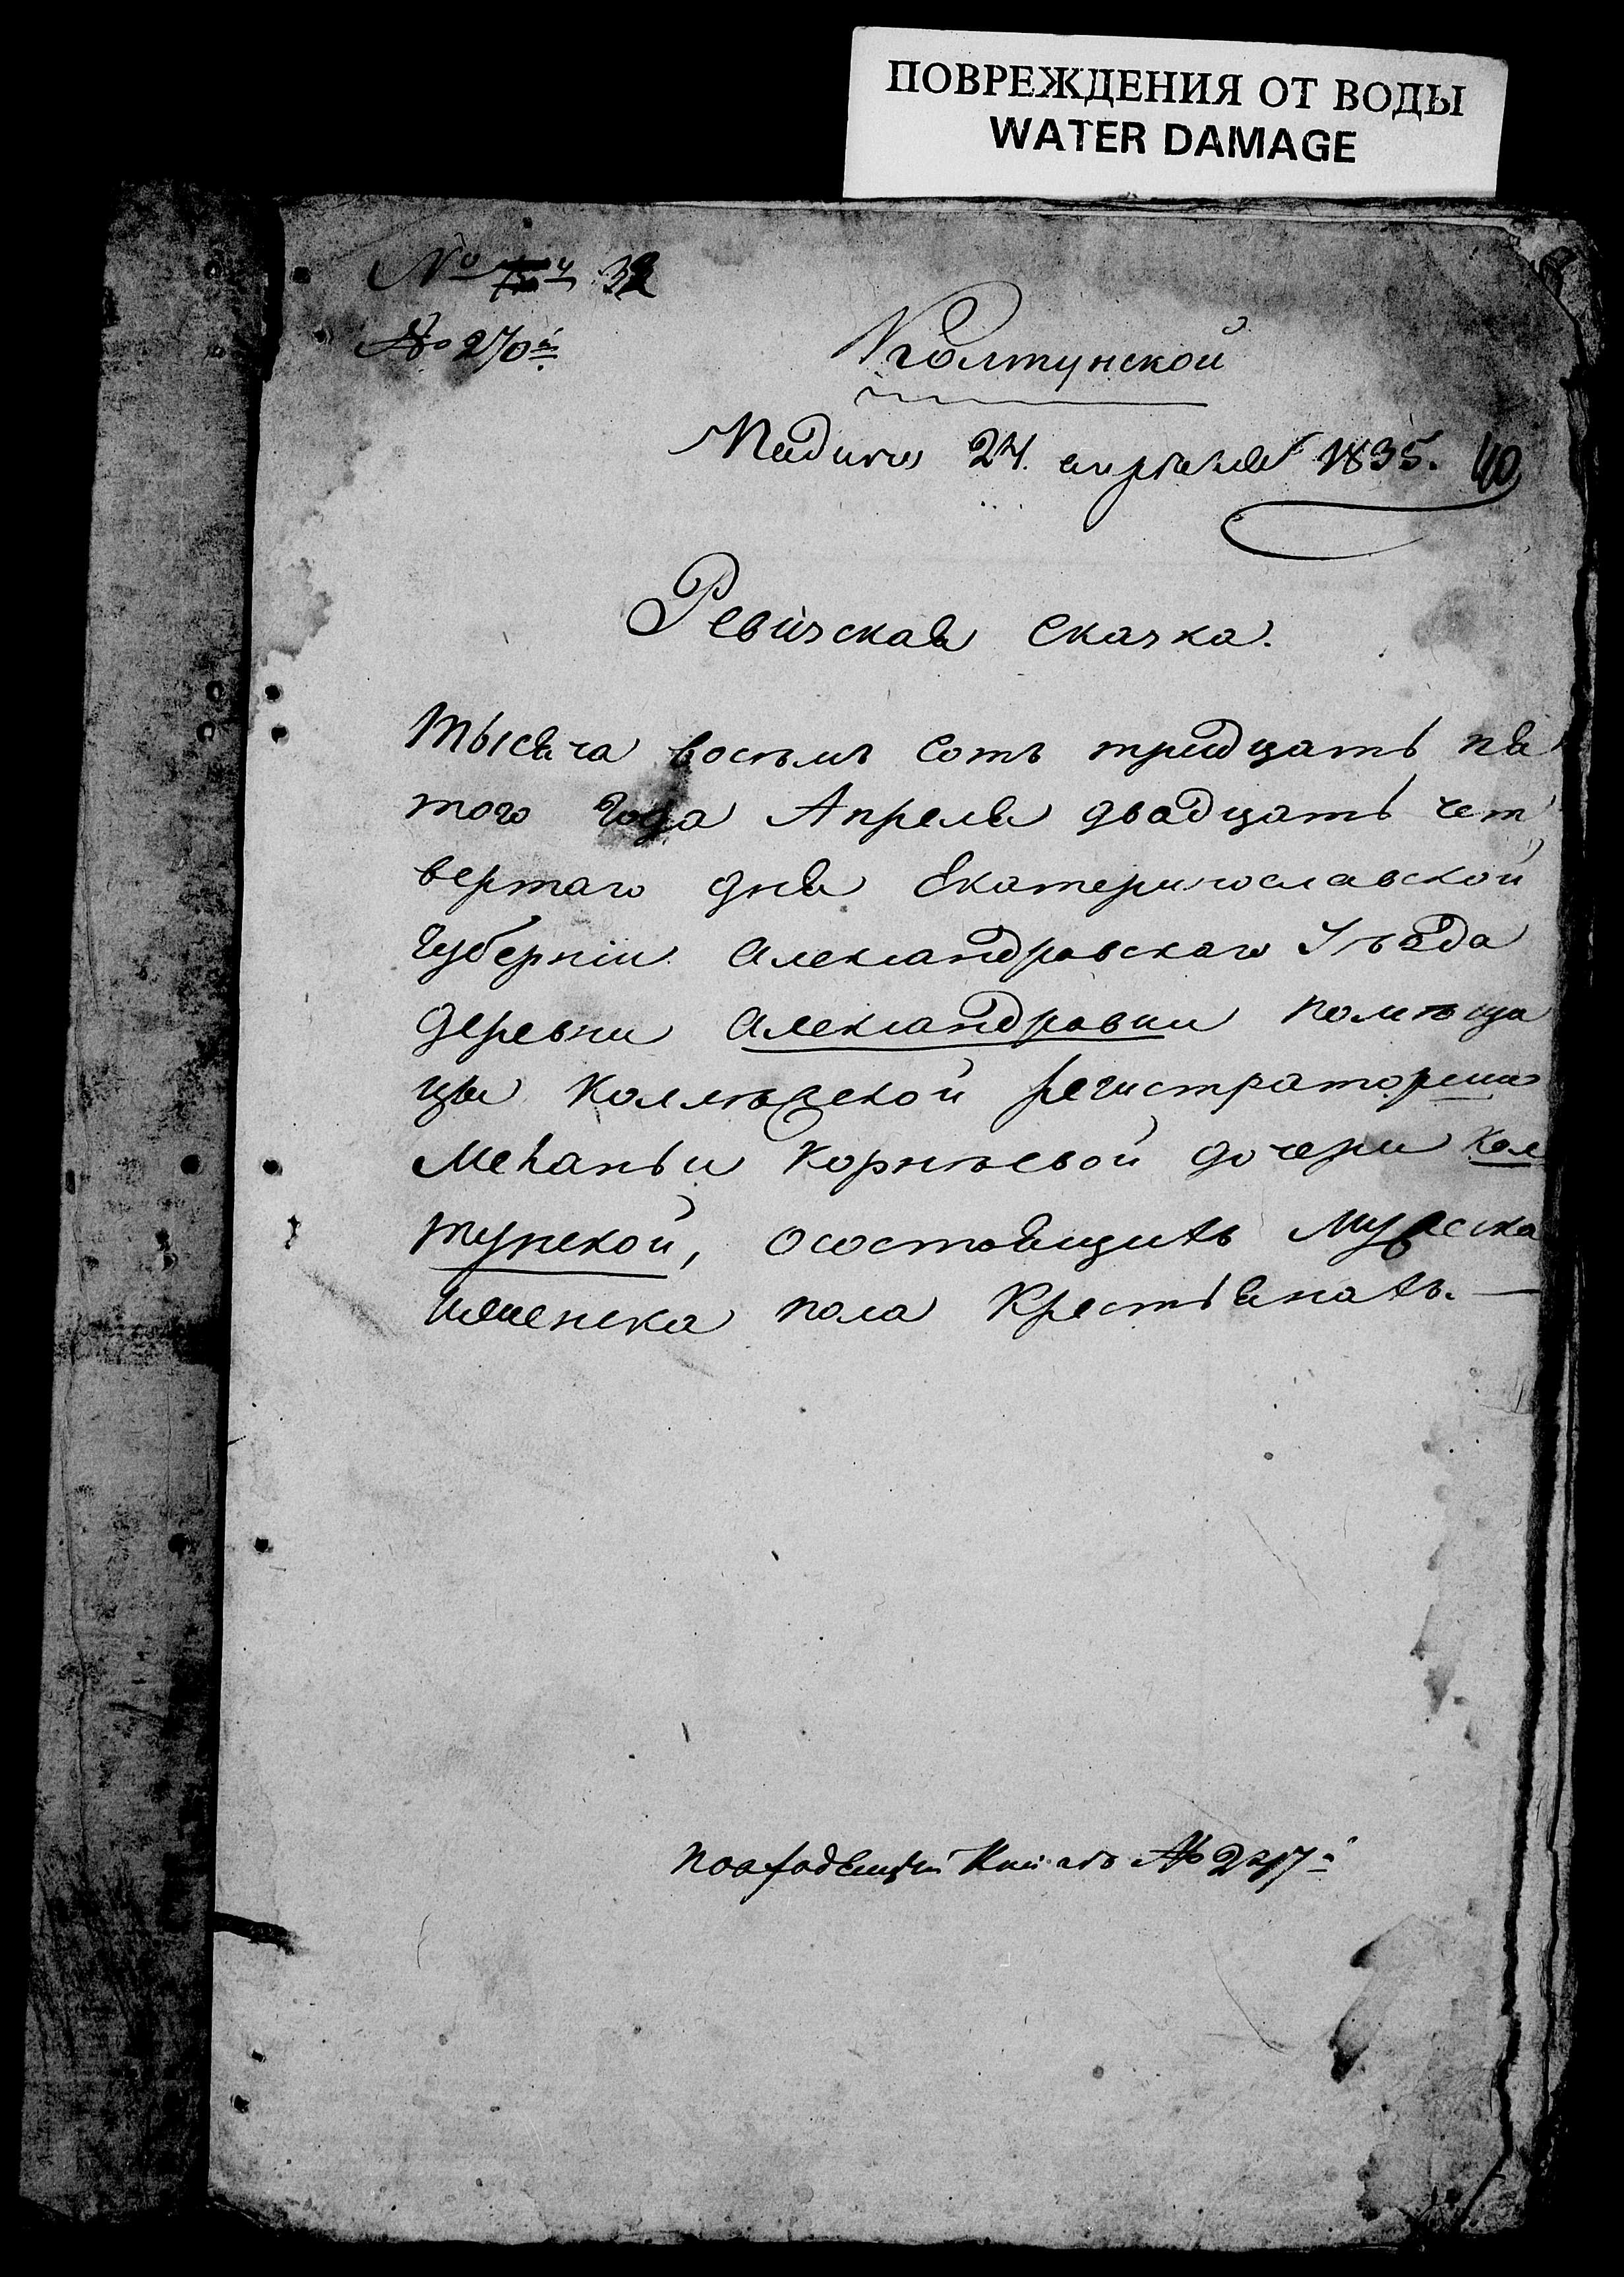 ПОВРЕЖДЕНИЯ ОТ ВОДЫ
WATER DAMAGE
№ 32
№ 270й
Колтунской
24. апреля 1835. 40
Ревизская сказка.
Тысяча восемь сотъ тридцать пя
того года Апреля двадцать чет
вертаго дня Екатеринославской
Губерніи Александровскаго Уѣзда
деревни Александровки помѣщи
цы Коллѣжской регистраторши
Меланьи Корнѣевой дочери Кол
тунской, осостоящихъ мужеска
иженска пола Крестьянахъ.
№